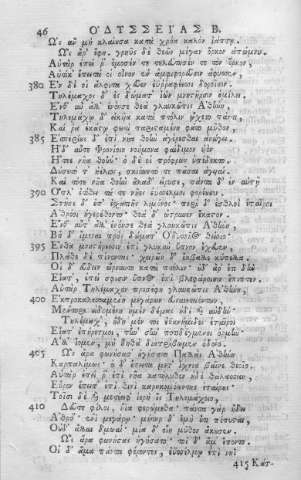 46 ὈΔΥΣΣΕΙΑΣ Β.
Ὡς ἂν μὴ κλαίουσα κατὰ χρόα καλὸν ἰάπτῃ.
Ὣς ἄρ' ἔφη· γρηῢς δὲ θεῶν μέγαν ὅρκον ἀπώμνυ.
Αὐτὰρ ἐπεί ῥ' ὄμοσέν τε τελεύτησέν τε τὸν ὅρκον,
Αὐτίκ' ἔπειτά οἱ οἶνον ἐν ἀμφιφορεῦσιν ἄφυσσεν,
380 Ἐν δέ οἱ ἄλφιτα χεῦεν ἐϋρραφέεσσι δοροῖσι·
Τηλέμαχος δ' ἐς δώματ' ἰὼν μνηστῆρσιν ὁμίλει.
Ἔνθ' αὖτ' ἄλλ' ἐνόησε θεὰ γλαυκῶπις Ἀθήνη.
Τηλεμάχῳ δ' εἰκυῖα κατὰ πτόλιν ᾤχετο πάντη,
Καί ῥα ἑκάστῳ φωτὶ παρισταμένη φάτο μῦθον·
385 Ἑσπερίους δ' ἐπὶ νῆα θοὴν ἀγέρεσθαι ἀνώγει.
Ἡ δ' αὖτε Φρονίοιο νοήμονα φαίδιμον υἱὸν
Ἤτεε νῆα θοήν· ὁ δέ οἱ πρόφρων ὑπέδεκτο.
Δύσετό τ' ἠέλιος, σκιόωντό τε πᾶσαι ἀγυιαί.
Καὶ τότε νῆα θοὴν ἅλαδ' εἴρυσε, πάντα δ' ἐν αὐτῇ
390 Ὅπλ' ἐτίθει τά τε νῆες ἐΰσσελμοι φορέουσι.
Στῆσε δ' ἐπ' ἐσχατιῇ λιμένος· περὶ δ' ἐσθλοὶ ἑταῖροι
Ἀθρόοι ἠγερέθοντο· θεὰ δ' ὤτρυνεν ἕκαστον.
Ἔνθ' αὖτ' ἄλλ' ἐνόησε θεὰ γλαυκῶπις Ἀθήνη,
Βῆ δ' ἴμεναι πρὸς δώματ' Ὀδυσσῆος θείοιο·
395 Ἔνθα μνηστήρεσσιν ἐπὶ γλυκὺν ὕπνον ἔχευεν,
Πλάζε δὲ πίνοντας· χειρῶν δ' ἔκβαλλε κύπελλα.
Οἱ δ' εὕδειν ὤρνυντο κατὰ πτόλιν· οὐδ' ἄρ' ἔτι δὴν
Εἵατ', ἐπεί σφισιν ὕπνος ἐπὶ βλεφάροισιν ἔπιπτεν.
Αὐτὰρ Τηλέμαχον προσέφη γλαυκῶπις Ἀθήνη,
400 Ἐκπροκαλεσσαμένη μεγάρων εὐναιεταόντων,
Μέντορι εἰδομένη ἠμὲν δέμας ἠδὲ καὶ αὐδήν·
Τηλέμαχ', ἤδη μέν τοι ἐϋκνήμιδες ἑταῖροι
Εἵατ' ἐπήρετμοι, τὴν σὴν ποτιδέγμενοι ὁρμήν·
Ἀλλ' ἴομεν, μὴ δηθὰ διατρίβωμεν ὁδοῖο.
405 Ὣς ἄρα φωνήσασ' ἡγήσατο Παλλὰς Ἀθήνη
Καρπαλίμως· ὁ δ' ἔπειτα μετ' ἴχνια βαῖνε θεοῖο.
Αὐτὰρ ἐπεί ῥ' ἐπὶ νῆα κατήλυθον ἠδὲ θάλασσαν,
Εὗρον ἔπειτ' ἐπὶ θινὶ καρηκομόωντας ἑταίρους·
Τοῖσι δὲ καὶ μετέειφ' ἱερὴ ἲς Τηλεμάχοιο,
410 Δεῦτε φίλοι, ἤϊα φερώμεθα· πάντα γὰρ ἤδη
Ἀθρό' ἐνὶ μεγάρῳ· μήτηρ δ' ἐμὴ οὔτι πέπυσται,
Οὐδ' ἄλλαι δμωαί· μία δ' οἴη μῦθον ἄκουσεν.
Ὣς ἄρα φωνήσας ἡγήσατο· τοὶ δ' ἅμ' ἕποντο.
Οἱ δ' ἄρα πάντα φέροντες, ἐϋσσέλμῳ ἐπὶ νηῒ
415 Κάτ-